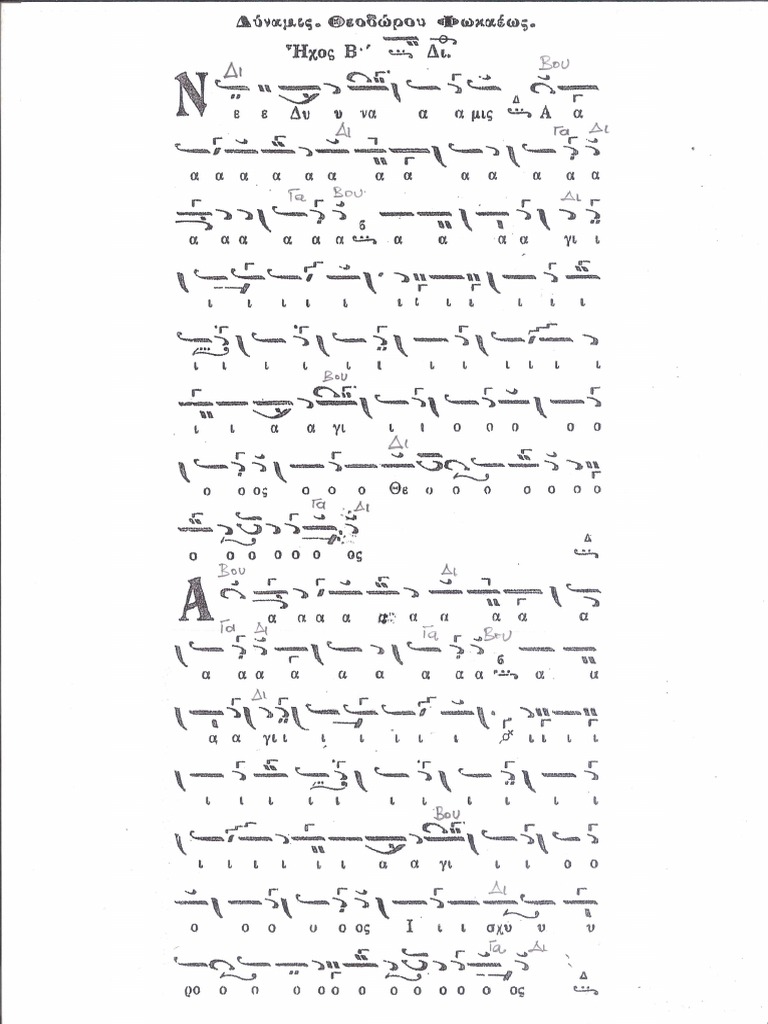 Δύναμις. Θεοδώρου Φωκαέως.
Ἦχος Β.΄ Δι.
Δι Βου
Ν ε ε Δυ υ να α α μις Δ Α α
Δι Γα Δι
α α α α α α α α α α α α α
Γα Βου Δι
α α α α α α β α α α α γι ι
ι ι ι ι ι ι ι ι ι ι ι ι
ι ι ι ι ι ι ι ι ι ι ι ι
Βου
ι ι α α γι ι ι ο ο ο ο ο
Δι
ο ο ος ο ο ο Θε ο ο ο ο ο ο ο
Γα Δι
ο ο ο ο ο ο ος Δ
Βου Δι
Α α α α α α α α α α α
Γα Δι Γα Βου
α α α α α α α α α β α α
Δι
α α γι ι ι ι ι ι ι ι ι ι ι
ι ι ι ι ι ι ι ι ι ι
Βου
ι ι ι ι ι ι ι α α γι ι ι ο ο
Δι
ο ο ο υ ο ος Ι ι ι σχυ υ υ
Γα Δι
ρο ο ο ο ο ο ο ο ο ο ο ο ος Δ